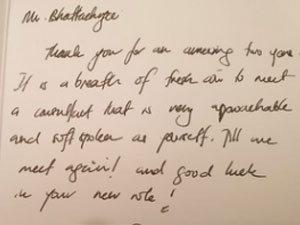 Mr. Bhattacharjee
Thank you for an amazing two years
It is a breath of fresh air to meet
a consultant that is very approachable
and soft spoken as yourself. Till we
meet again! and good luck
in your new role!